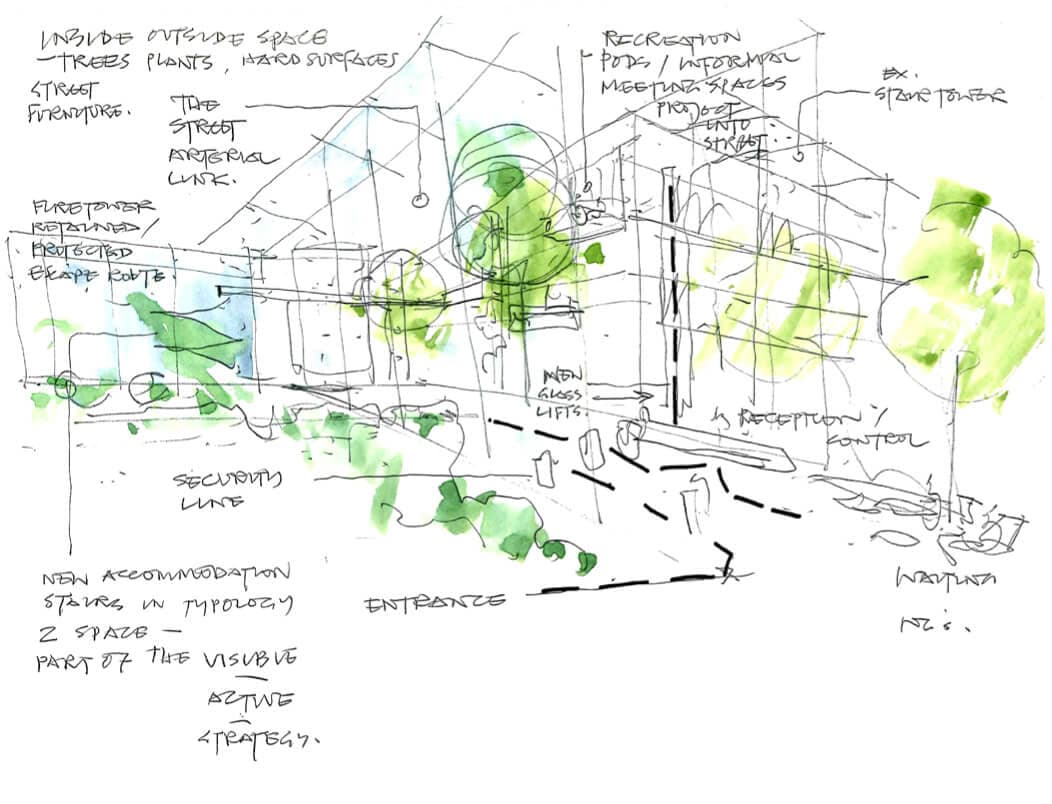 INSIDE OUTSIDE SPACE
– TREES PLANTS, HARD SURFACES
STREET
FURNITURE.
THE
STREET
ARTERIAL
LINK.
RECREATION
PODS / INFORMAL
MEETING SPACES
PROJECT
INTO
STREET.
EX.
STAIR TOWER
FIRE TOWER
RETAINED /
PROTECTED
ESCAPE ROUTE.
NEW
GLASS
LIFTS.
RECEPTION /
CONTROL
SECURITY
LINE
ENTRANCE
WAITING
NEW ACCOMMODATION
STAIRS IN TYPOLOGY
2 SPACE –
PART OF THE VISIBLE
ACTIVE
STRATEGY.